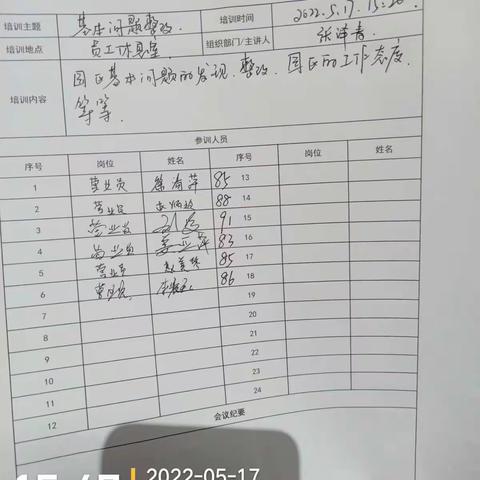 培训主题 基本问题整改. 培训时间 2022.5.17. 15:20.
培训地点 员工休息室 组织部门/主讲人
培训内容 园区基本问题的发现、整改、园区的工作态度.
等等.
参训人员
序号 岗位 姓名 序号 岗位 姓名
1 营业员 85 13
2 营业员 88 14
3 营业员 91 15
4 营业员 83 16
5 营业员 85 17
6 营业员 86 18
7 19
8 20
9 21
10 22
11 23
12 24
会议纪要
2022-05-17